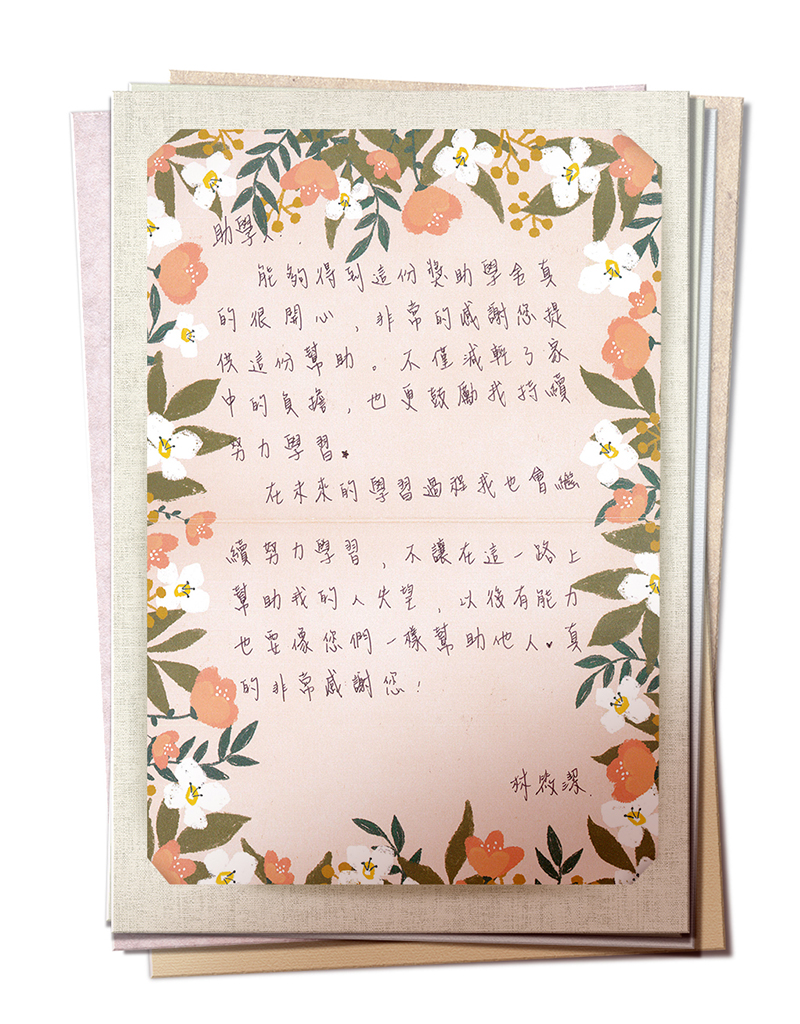 助學人:
能夠得到這份獎助學金真
的很開心，非常的感謝您提
供這份幫助。不僅減輕了家
中的負擔，也更鼓勵我持續
努力學習。
在未來的學習過程我也會繼
續努力學習，不讓在這一路上
幫助我的人失望，以後有能力
也要像您們一樣幫助他人。真
的非常感謝您！
林 潔